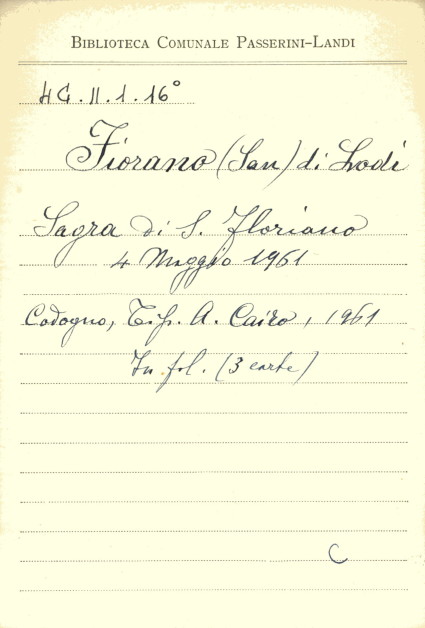 BIBLIOTECA COMUNALE PASSERINI-LANDI
4G.II.1.16°
Fiorano (San) di Lodi
Sagra di S. Floriano
4 Maggio 1961
Codogno, Tip. A. Cairo, 1961
In fol. (3 carte)
C